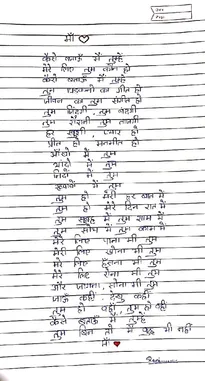 माँ
कैसे बताऊँ मैं तुम्हें
मेरे लिए तुम कौन हो
कैसे बताऊँ मैं तुम्हें
तुम धड़कनों का गीत हो
जीवन का तुम संगीत हो
तुम ज़िंदगी, तुम बंदगी
तुम रोशनी तुम ताज़गी
हर खुशी प्यार हो
प्रीत हो मनमीत हो
आँखों में तुम
यादों में तुम
नींदों में तुम
ख्वाबों में तुम
तुम हो मेरी हर बात में
तुम हो मेरे दिन रात में
तुम सुबह में तुम शाम में
तुम सोच में तुम काम में
मेरे लिए पाना भी तुम
मेरे लिए खोना भी तुम
मेरे लिए हँसना भी तुम
मेरे लिए रोना भी तुम
और जागना, सोना भी तुम
जाऊँ कहीं देखूँ कहीं
तुम हो वहाँ, तुम हो वहीं
कैसे बताऊँ मैं तुम्हें
तुम बिन तो मैं कुछ भी नहीं
माँ